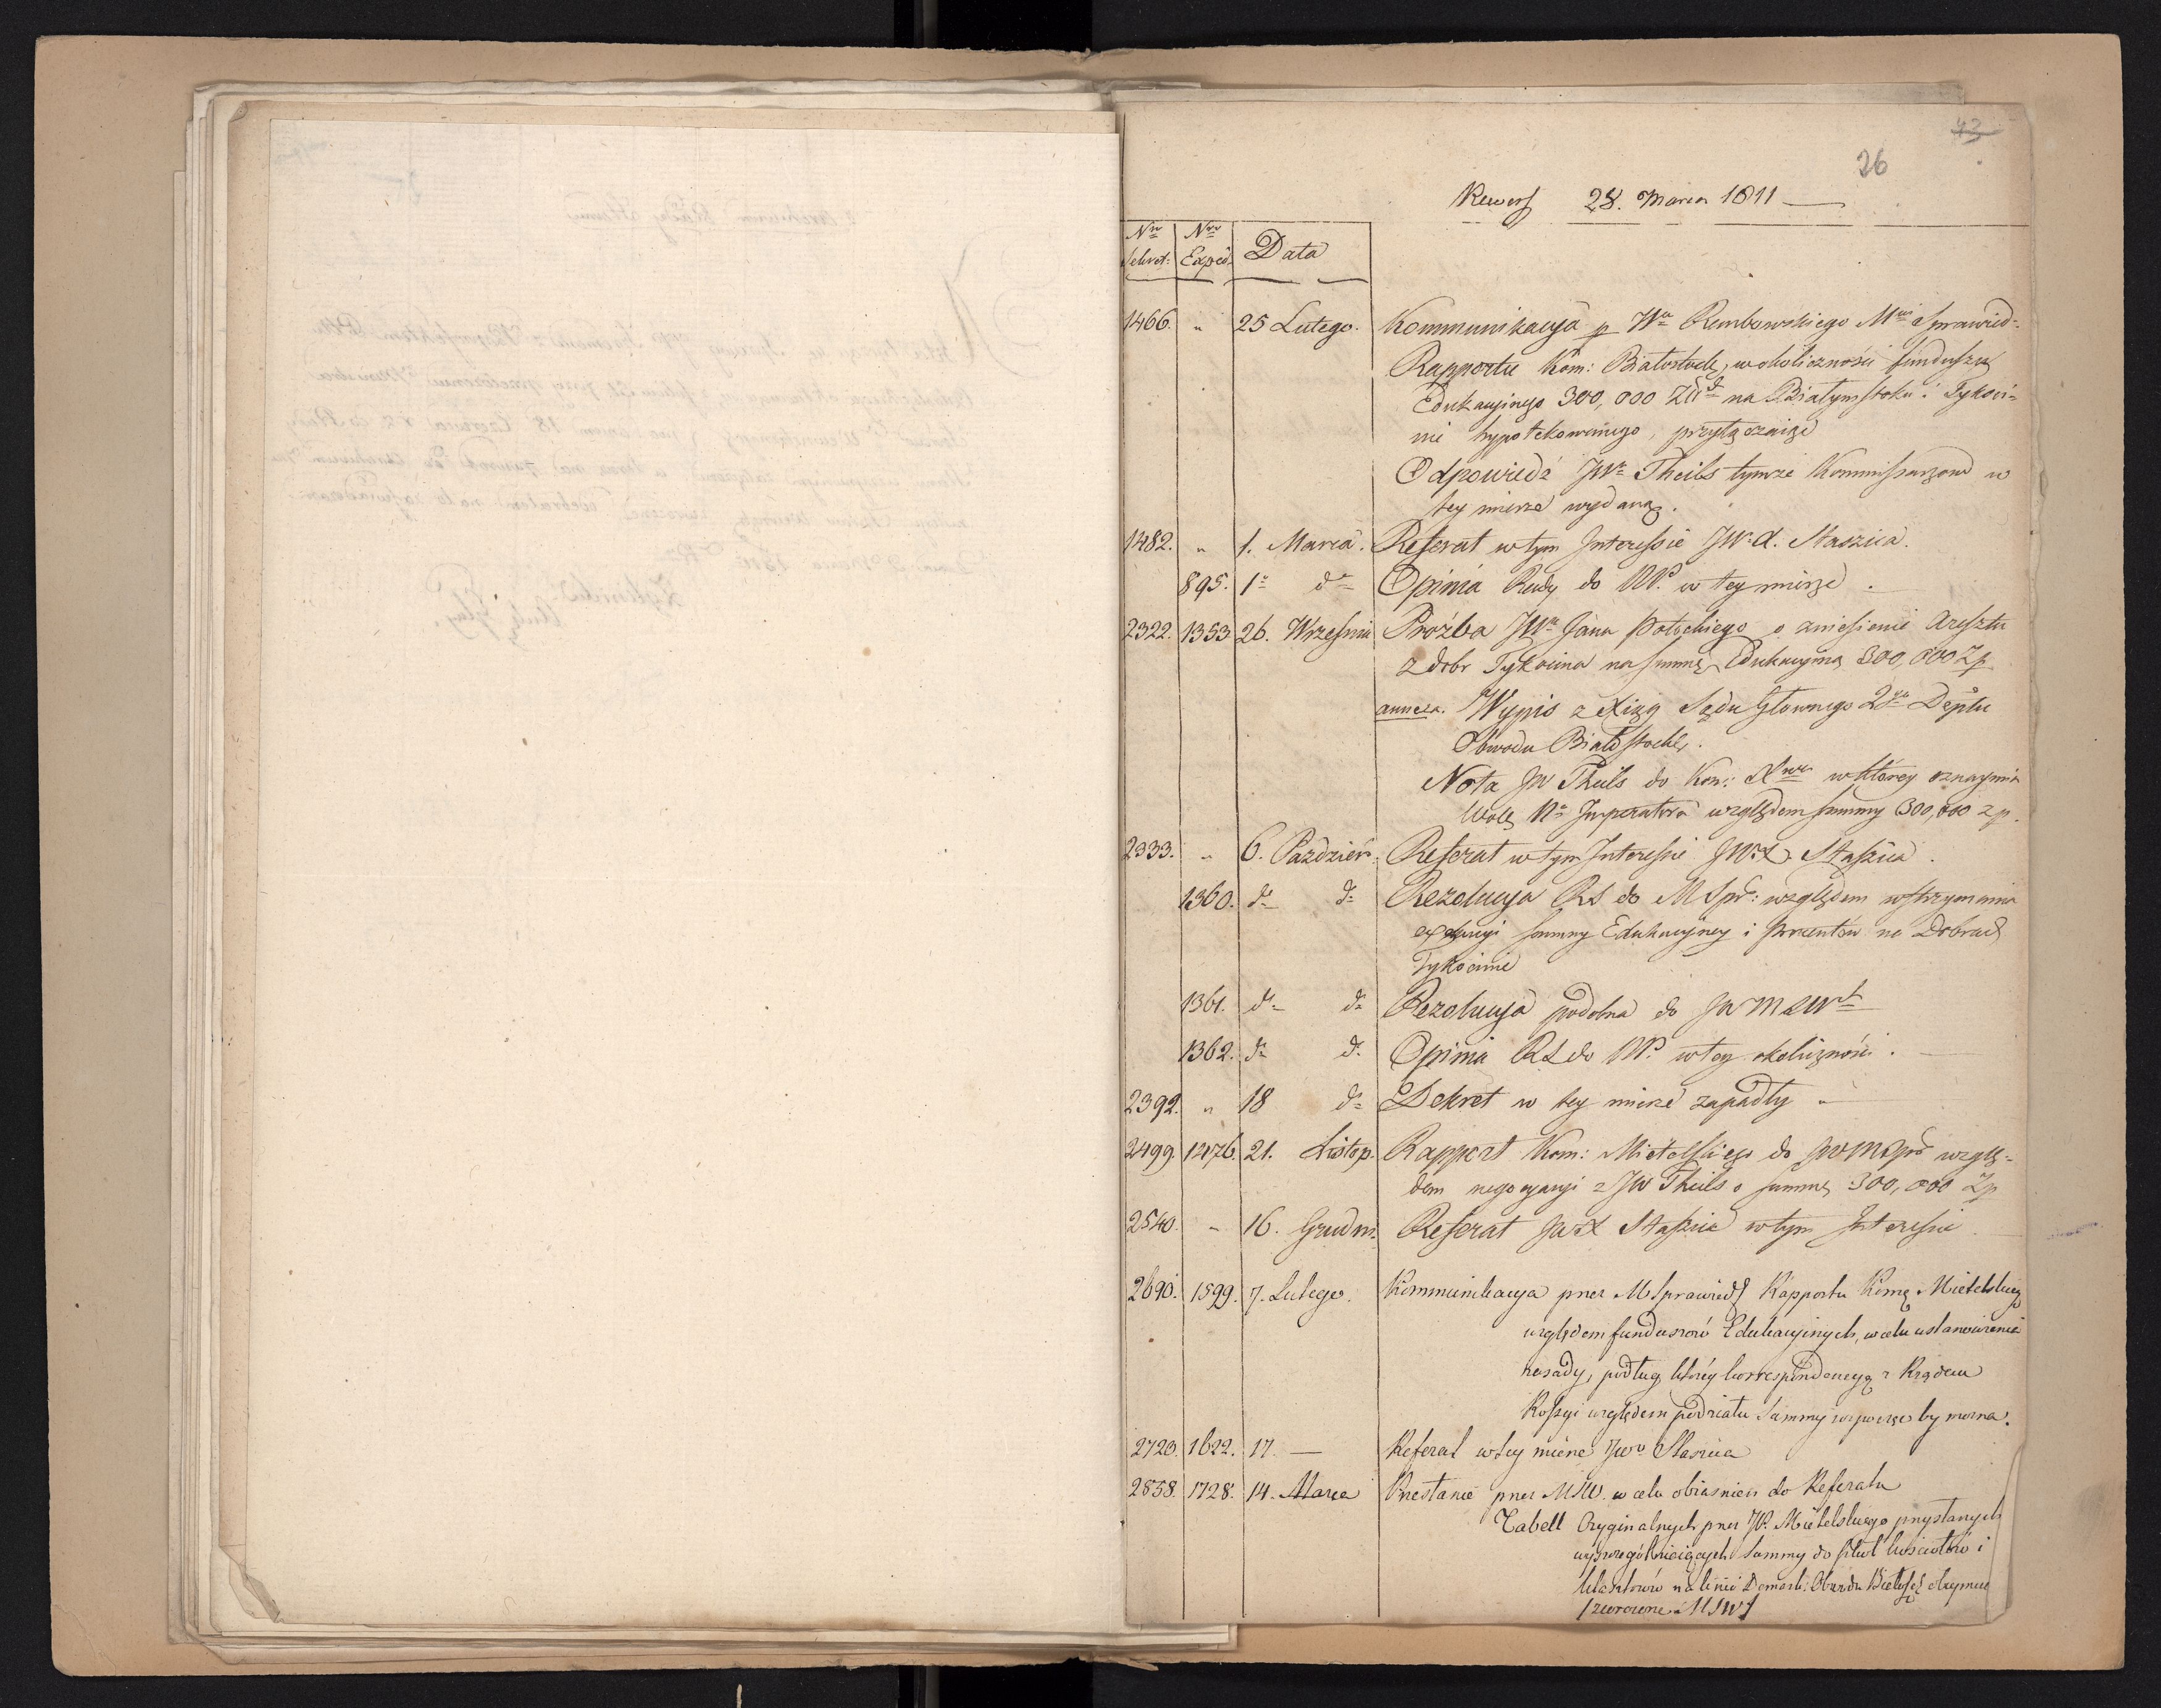 43
26
Rewers 28. Marca 1811
Nro Nro Data
Sekret: Exped.
1466. " 25 Lutego. Kommunikacya p JWo Rembowskiego Mra Sprawied:
Rapportu Kom: Białostock, w okoliczności funduszu
Edukacyinego 300,000 Złł na Białymstoku i Tykoci=
nie hypotekowanego, przyłączaiąc
Odpowiedź JWo Theils tymże Kommissarzom w
tey mierze wydaną.
1482. " 1. Marca. Referat w tym Interessie JWX. Staszica.
895. 1o do Opinia Rady do NP. w tey mierze.
2322. 1353 26. Wrześnie Prożba JWo Jana Potockiego o zniesienie Aresztu
z dobr Tykocina na summę Edukacyiną 300,000 Zp
annexa. Wypis z Xiąg Sądu Głownego 2go Deptu
Obwodu Białostock.
Nota JW Theils do Kom: w ktorey oznaymia
Wolę No Imperatora względem summy 300,000 zp.
2333. " 6. Paździer: Referat w tym Interessie JWX. Staszica.
1360. do do Rezolucya RS do MSpr: względem wstrzymania
summy Edukacyiney i procentów na Dobrach
Tykocinie
1361. do do Rezolucya podobna do JW
1362. do do Opinia RS do NP. w tey okoliczności.
2392. " 18 do Dekret w tey mierze zapadły
2499. 1476. 21. Listop. Rapport Kom: Mietelskiego do JWMSpr wzglę=
dem negocyacyi z JW Theils o summę 300,000 Zp
2540. " 16. Grudn. Referat JWX Staszica w tym Interessie
2690. 1599. 7. Lutego. Kommunikacya przez MSprawiedl Rapportu Mietelskieg
względem funduszow Edukacyinych, w celu ustanowienia
zasady, podług którey korrespondencyą z Rządem
Rossyi względem podziału Summy rozpocząć by można.
2723. 1622. 17. — Referat w tey mierze JWo Staszica
2858. 1728. 14. Marca Przesłanie przez MSW. w celu obiaśnień do Referatu
Tabell Oryginalnych przez JP. Mietelskiego przysłanych
wyszczegolniaiących Summy do
Klasztorow na linii Demark: Obwodu
/zwrocone MSW/